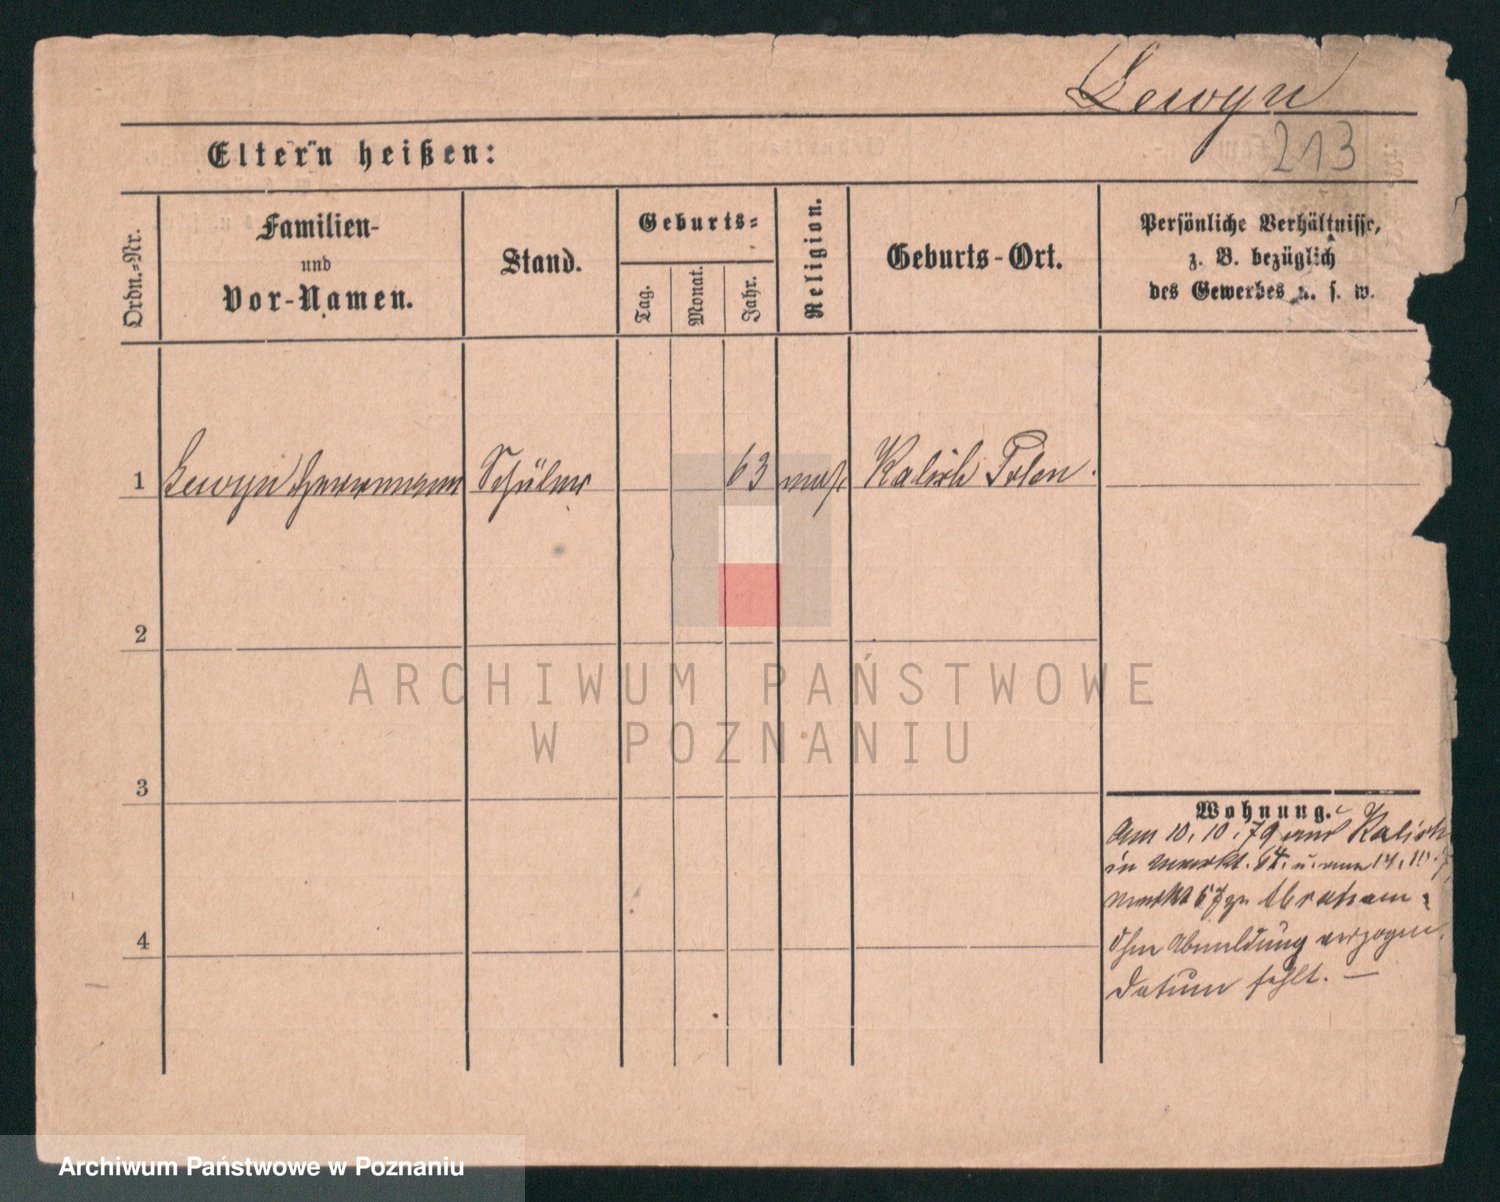 Lewyn
213
Eltern heißen:
Ordn.-Nr.
Familien-
und
Vor-Namen.
Stand.
Geburts-
Tag.
Monat.
Jahr.
Religion.
Geburts-Ort.
Persönliche Verhältnisse,
z. B. bezüglich
des Gewerbes u. s. w.
1 Lewyn Herrmann Schüler 63 mos. Kalisch Polen.
2
3
4
Wohnung.
Am 10. 10. 79 aus Kalisch
in Markt. 64. u. am 14.
Markt 57 zu Abraham
Ohne Abmeldung verzogen.
Datum fehlt. —
ARCHIWUM PAŃSTWOWE
W POZNANIU
Archiwum Państwowe w Poznaniu